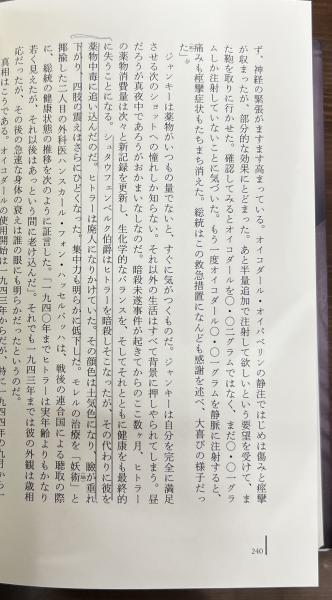 ず、神経の緊張がますます高まっている。オイコダール・オイパベリンの静注ではじめは傷みと痙攣
が収まったが、部分的な効果にとどまった。あと半量追加で注射して欲しいという要望を受けて、ま
た鞄を取りに行かせた。確認してみるとオイコダール〇・〇二グラムではなく、まだ〇・〇一グラ
ムしか注射していないことに気づいた。もう一度オイコダール〇・〇一グラムを静脈に注射すると、
痛みも痙攣症状もたちまち消えた。総統はこの救急措置になんども感謝を述べ、大喜びの様子だっ
た」。
ジャンキーは薬物がいつもの量でないと、すぐに気がつくものだ。ジャンキーは自分を完全に満足
させる次のショットへの憧れしか知らない。それ以外の生活はすべて背景に押しやられてしまう。昼
だろうが真夜中であろうがおかまいなしなのだ。暗殺未遂事件が起きてからのここ数ヶ月、ヒトラー
の薬物消費量は次々と新記録を更新し、生化学的なバランスを、そしてそれとともに健康をも最終的
に失うことになる。シュタウフェンベルク伯爵はヒトラーを暗殺しそこなったが、その代わりに彼を
薬物中毒に追い込んだのだ。ヒトラーは廃人になりかけていた。その顔色は土気色になり、瞼が垂れ
下がり、四肢の震えはさらにひどくなった。集中力も明らかに低下した。モレルの治療を「妖術」と
揶揄した二人目の外科医ハンスカール・フォン・ハッセルバッハは、戦後の連合国による聴取の際
に、総統の健康状態の推移を次のように証言した。「一九四〇年までヒトラーは実年齢よりもかなり
若く見えたが、それ以後はあっという間に老け込んだ。それでも一九四三年までは彼の外観は歳相
応だったが、その後の急速な身体の衰えは誰の眼にも明らかだったというのだ。
真相はこうである。オイコダールの使用開始は一九四三年からだが、特に一九四四年の九月から
240